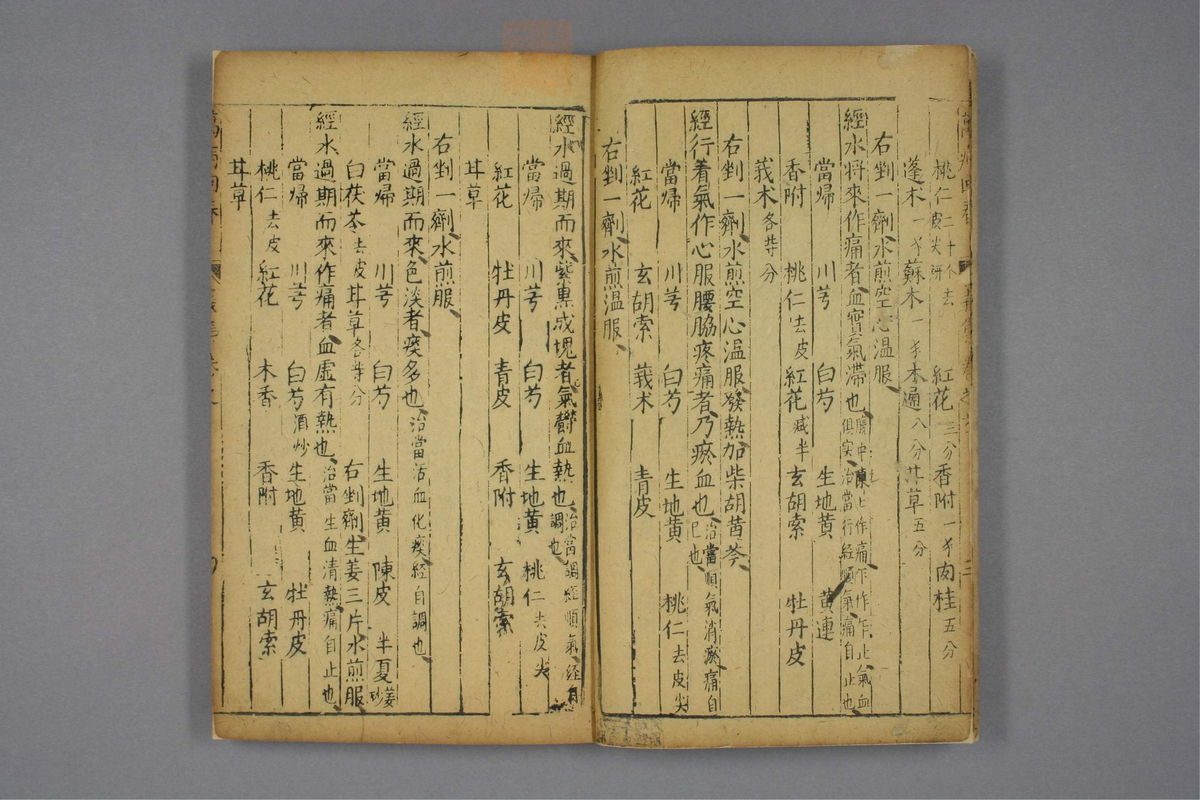 桃仁二十个去皮尖研 紅花三分 香附一才 肉桂五分
蓬木一才 蘇木一才 木通八分 甘草五分
右剉一劑水煎空心温服
經水將來作痛者血實氣滯也腹中陳上作痛乍作乍止氣血俱实治當行經順氣痛自止也
當帰 川芎 白芍 生地黄 黄連
香附 桃仁去皮 紅花減半 玄胡索 牡丹皮
莪术各等分
右剉一劑水煎空心温服發熱加柴胡黄芩
經行着氣作心服腰脇疼痛者乃瘀血也治當順氣消瘀痛自已也
當帰 川芎 白芍 生地黄 桃仁去皮尖
紅花 玄胡索 莪术 青皮
右剉一劑水煎温服
經水過期而來紫黒成塊者氣欝血熱也治當調經順氣經自調也
當帰 川芎 白芍 生地黄 桃仁去皮尖
紅花 牡丹皮 青皮 香附 玄胡索
甘草
右剉一劑水煎服
經水過期而來色淡者痰多也治當活血化痰經自調也
當帰 川芎 白芍 生地黄 陳皮 半夏姜炒
白茯苓去皮 甘草各等分 右剉劑生姜三片水煎服
經水過期而來作痛者血虚有熱也治當生血清熱痛自止也
當帰 川芎 白芍酒炒 生地黄 牡丹皮
桃仁去皮 紅花 木香 香附 玄胡索
甘草